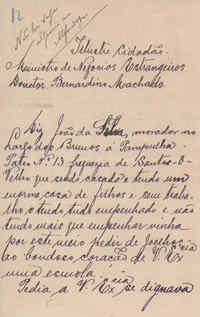 12
Illustre Cidadão
Ministro de Negocios Estrangeiros
Doutor Bernardino Machado
Diz João da Silva, morador no
largo dos Buracos á Pampulha
Pateo Nº 13 freguezia de Santos-O-
Velho que sendo casado e tendo um
enorme casa de filhos e sem traba-
lho e tendo tudo empenhado e não
tendo mais que empenhar vinha
por este meio pedir de joelhos
ao bondoso coração de V. Ex cia
uma esmola.
Pedia a V. Ex cia se dignava